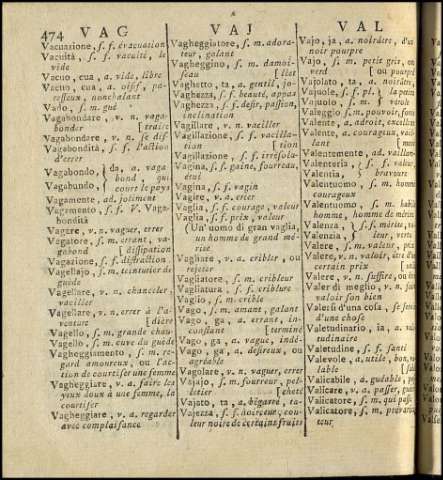 474 VAG VAJ VAL
Vacuazione, s. f. évacuation
Vacuità, s. f. vacuité, le
vide
Vacuo, cua, a. vide, libre
Vacuo, cua, a. oisif, pa-
resseux, nonchalant
Vado, s. m. gué
Vagabondare, v. n. vaga-
bonder
Vagabondare, v. n. se dis-
Vagabondità, s. f. l'action
d'errer
Vagabondo, da, a. vaga
bond, qui
Vagabundo, court le pays
Vagamente, ad. joliment
Vagamento, s. f. V. Vaga-
bondità
Vagare, v. n. vaguer, errer
Vagatore, s. m. errant, va-
gabond [dissipation
Vagazione, s. f. distraction
Vagellajo, s. m. teinturier de
guède
Vagellare, v. n. chanceler,
vaciller
Vagellare, v. n. errer à l'a-
venture [dière
Vagello, s. m. grande chau-
Vagello, s. m. cuve du guède
Vagheggiamento, s. m. re-
gard amoureux, ou l'ac-
tion de courtiser une femme
Vagheggiare, v. a. faire les
yeux doux à une femme, la
courtiser
Vagheggiare, v. a. regarder
avec complaisance
Vagheggiatore, s. m. adora-
teur, galant
Vagheggino, s. m. damoi-
seau [lat
Vaghetto, ta, a. gentil, jo-
Vaghezza, s. f. beauté, appas
Vaghezza, s. f. desir, passion,
inclination
Vagillare, v. n. vaciller
Vagillazione, s. f. vacilla-
tion [tion
Vagillazione, s. f. irrésolu-
Vagina, s. f. gaine, fourreau,
étui
Vagina, s. f. vagin
Vagire, v. a. crier
Vaglia, s. f. courage, valeur
Vaglia, s. f. prix, valeur
(Un'uomo di gran vaglia,
un homme de grand mé-
rite
Vagliare, v. a. cribler, ou
rejeter
Vagliatore, s. m. cribleur
Vagliatura, s. f. criblure
Vaglio, s. m. crible
Vago, s. m. amant, galant
Vago, ga, a. errant, in-
constant [terminé
Vago, ga, a. vague, indé-
Vago, ga, a. desireux, ou
agréable
Vagolare, v. n. vaguer, errer
Vajajo, s. m. fourreur, pel-
letier [cheté
Vajato, ta, a. bigarré, ta-
Vajezza, s. f. noirceur, cou-
leur noire de certains fruits
Vajo, ja, a. noirâtre, d'un
noir pourpre
Vajo, s. m. petit gris, ou
verd [ou pourpré
Vajolato, ta, a. noirâtre,
Vajuole, s. f. pl. la petite
Vajuolo, s. m. vérole
Valeggio, s. m. pouvoir, force
Valente, a. adroit, excellent
Valente, a. courageux, vail-
lant
Valentemente, ad. vaillam-
Valenteria, s. f. valeur,
Valentia, bravoure
Valentuomo, s. m. homme
courageux
Valentuomo, s. m. habile
homme, homme de mérite
Valenza, s. f. mérite,
Valenzia, leur, vertu
Valere, s. m. valeur, prix
Valere, v. n. valoir, être d'un
certain prix
Valere, v. n. suffire, ou être
Valer di meglio, v. n. faire
valoir son bien
Valersi d'una cosa, se servir
d'une chose
Valetudinario, ia, a. valé-
tudinaire
Valetudine, s. f. santé
Valevole, a. utile, bon,
lable
Valicabile, a. guéable,
Valicare, v. a. passer,
Valicatore, s. m. qui passe
Valicatore, s. m. prévarica-
teur